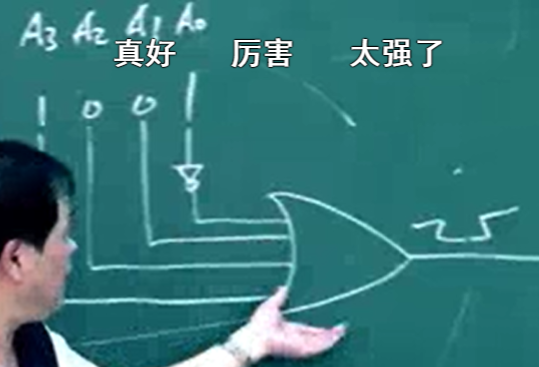 A3 A2 A1 A0
真好 厉害 太强了
1 0 0 1